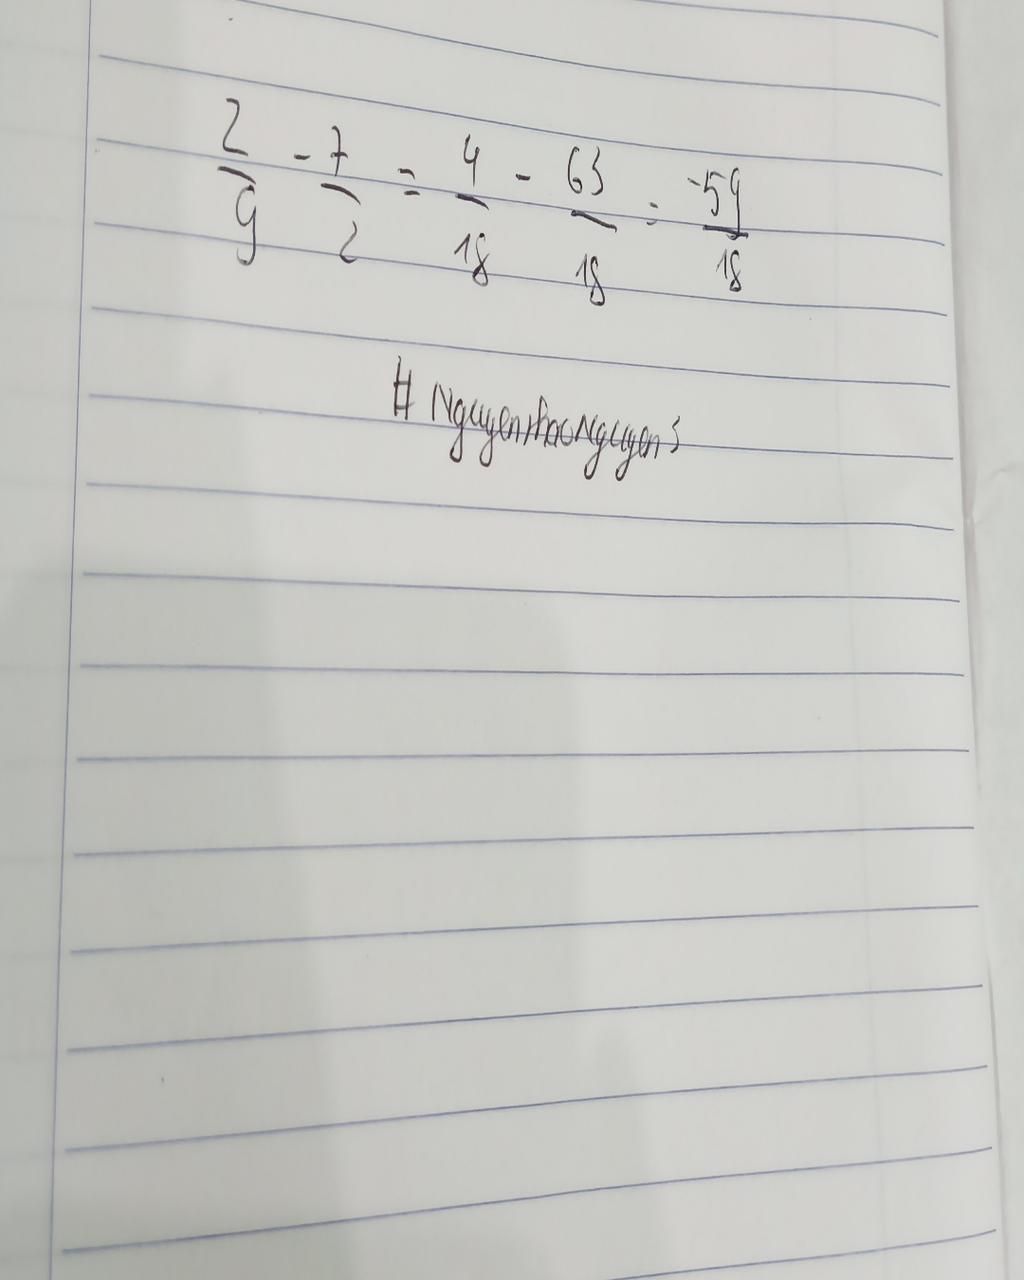 2/9 - 7/2 = 4/18 - 63/18 = -59/18
# NguyenthaoNguyen3